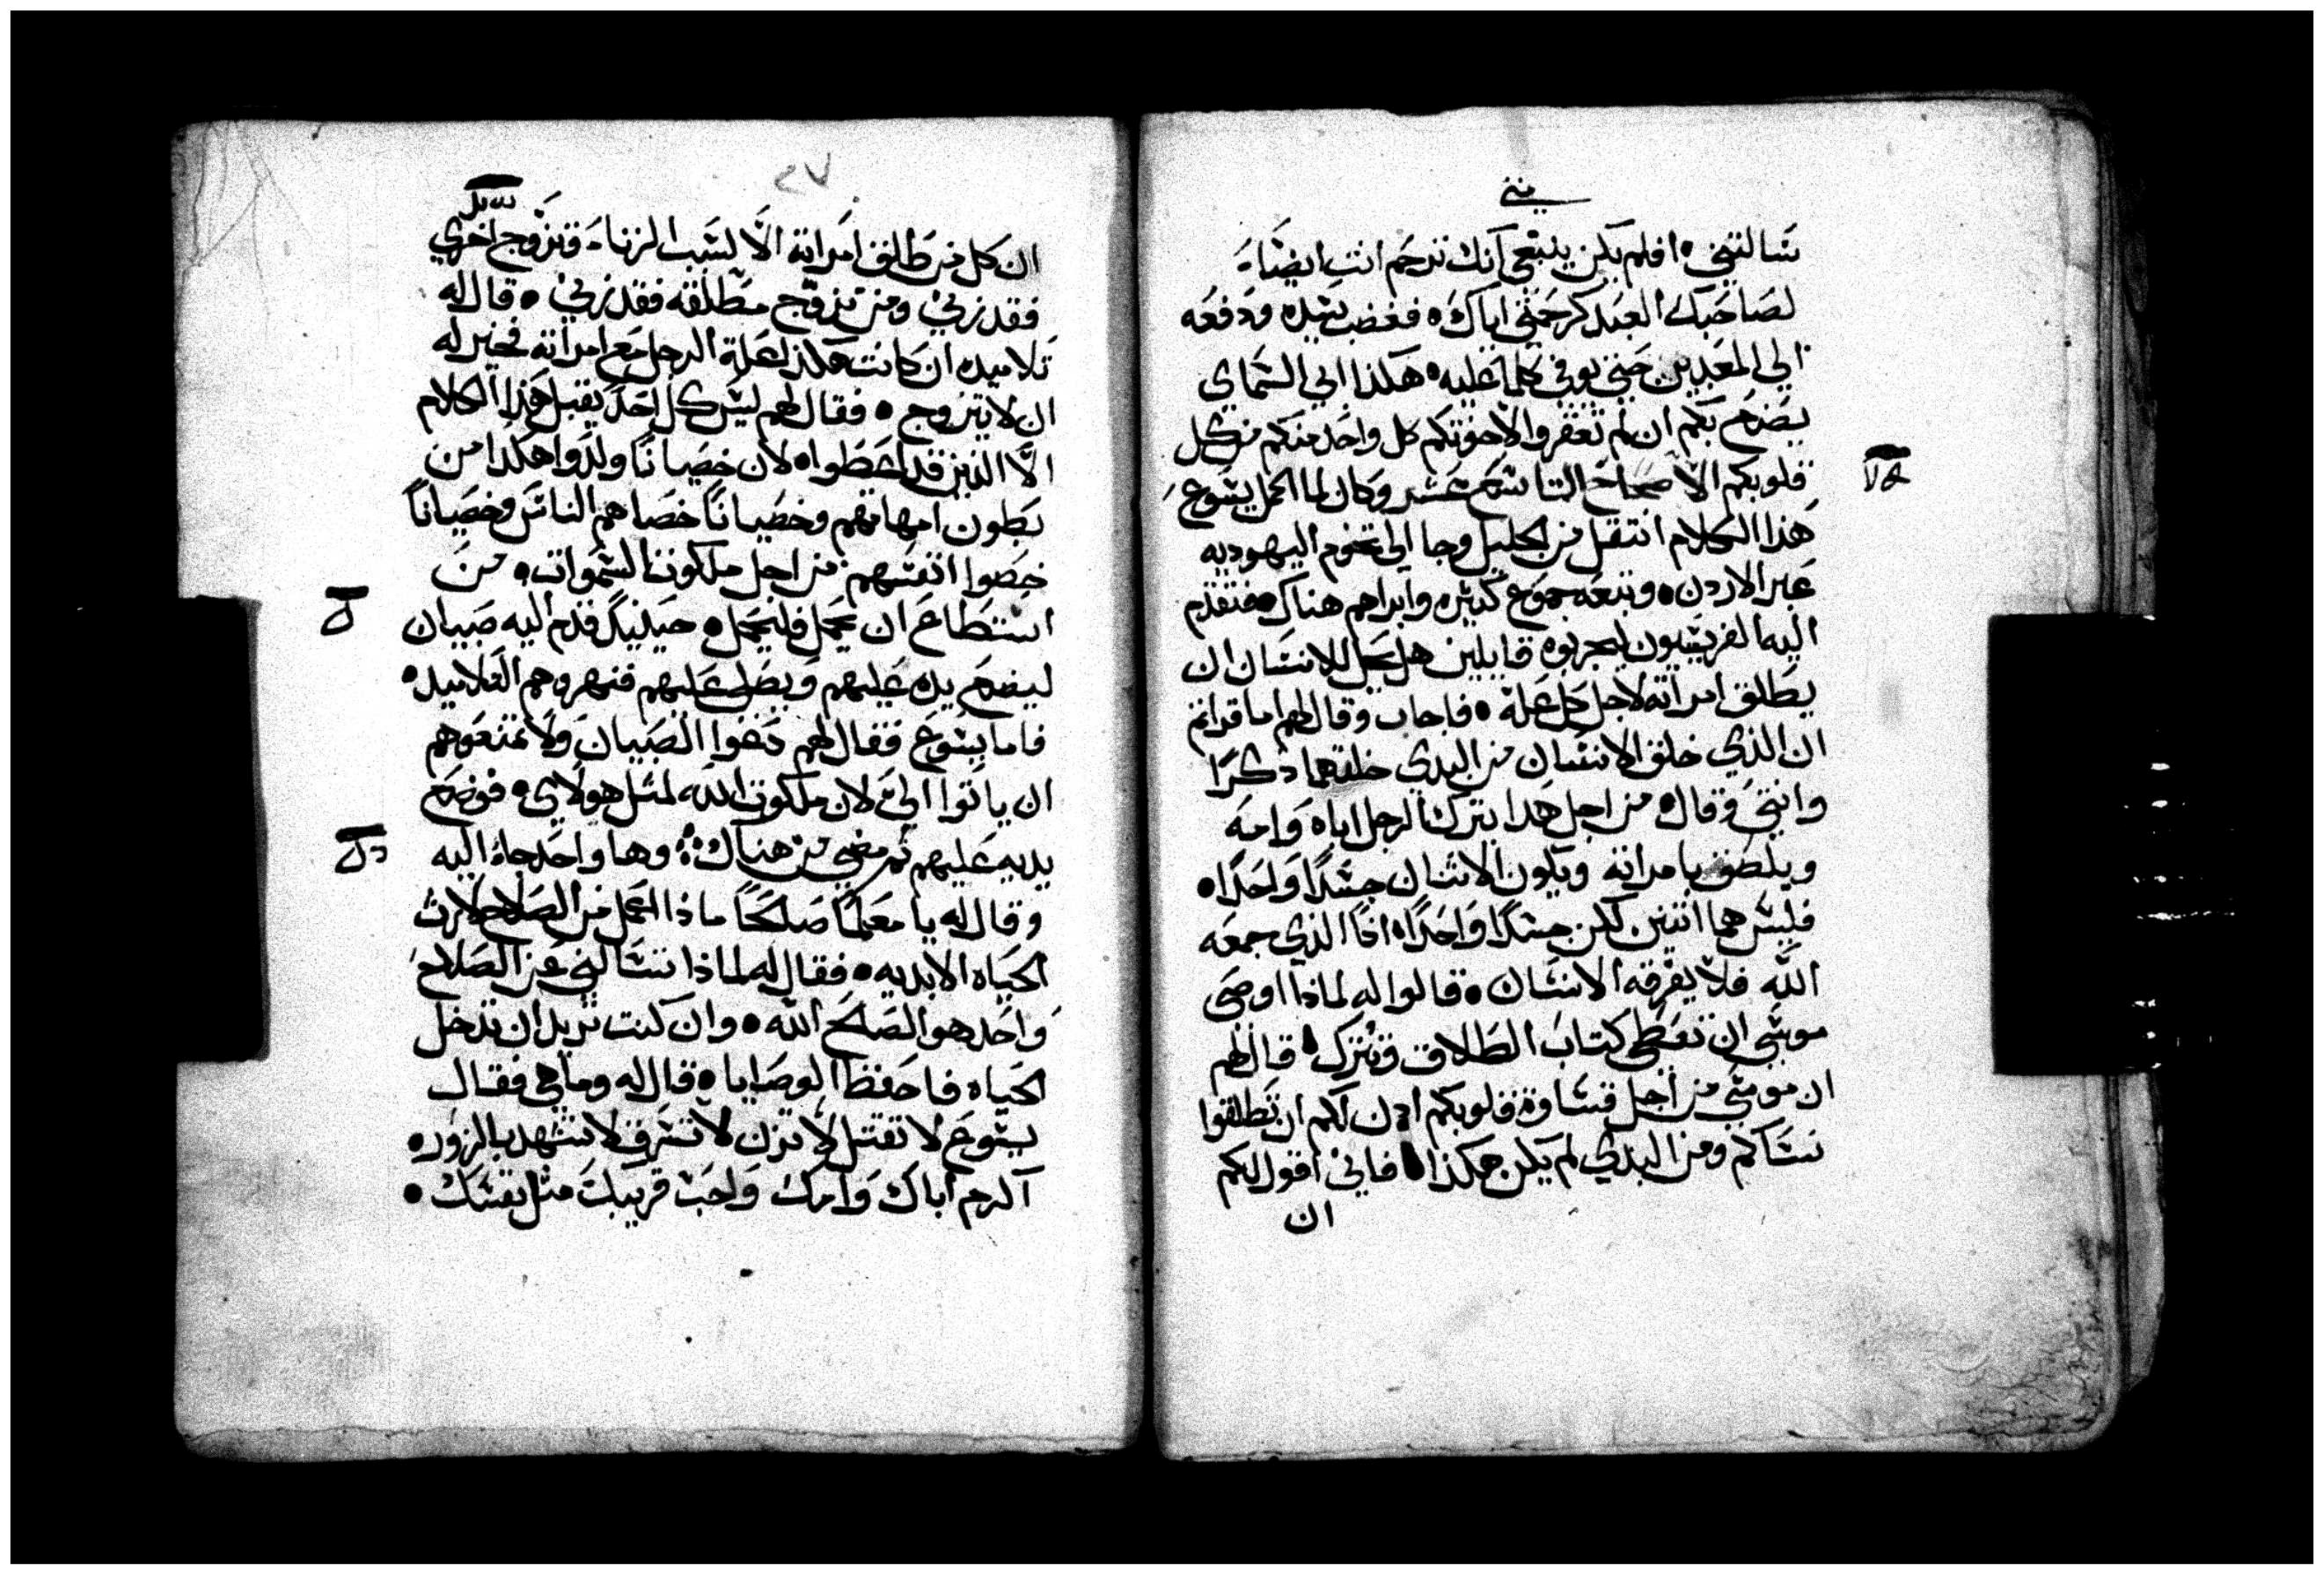 متي
سالتني ۰ افلم يكن ينبغي انك ترحم انت ايضاً
لصاحبك العبد كرحمتي اياك ۰ فغضب سيده ودفعه
الي المعدبين حتي يوفي كلما عليه ۰ هكذا ابي السماي
يصنع بكم ان لم تغفروا لاخوتكم كل واحد منكم من كل
قلوبكم الاصحاح التاسع عشر وكان لما اكمل يسوع
هذا الكلام انتقل من الجليل وجا الي تخوم اليهوديه
عبر الاردن ۰ وتبعه جموع كثيره وابراهم هناك ۰ فتقدم
اليه الفريسيون ليجربوه قايلين هل يحل للانسان ان
يطلق امراته لاجل كل علة ۰ فاجاب وقال لهم اما قراتم
ان الذي خلق الانسان من البدي خلقهما دكرًا
وانتي وقال ۰ من اجل هدا يترك الرجل اباه وامه
ويلصق بامراته ويكون الاتنان جسدًا واحدًا ۰
فليس هما اتنين لكن جسدًا واحدًا ۰ اذًا الذي جمعه
الله فلا يفرقه الانسان ۰ قالوا له لماذا اوصي
موسي ان تعطي كتاب الطلاق وتترك ۰ قال لهم
ان موسي من اجل قساوة قلوبكم ادن لكم ان تطلقوا
نساكم ومن البدي لم يكن هكذا ۰ فاني اقول لكم
ان
٢٧
ان كل من طلق امراته الا لسبب الزناء وتزوج اخري
فقد زني ومن تزوج مطلقه فقد زني ۰ قال له
تلاميده ان كانت هكذا علة الرجل مع امراته فخير له
ان لا يتزوج ۰ فقال لهم ليس كل احد يقبل هذا الكلام
الا الذين قد اعطواه لان خصيانًا ولدوا هكدا من
بطون امهاتهم وخصيانًا خصاهم الناس وخصيانًا
خصوا انفسهم من اجل ملكوت السموات ۰ من
استطاع ان يحمل فليحمل ۰ حينيدٍ قدم اليه صبيان
ليضع يده عليهم ويصلي عليهم فنهروهم التلاميد ۰
فاما يسوع فقال لهم دعوا الصبيان ولا تمنعوهم
ان ياتوا الي لان ملكوت الله لمثل هولاي ۰ فوضع
يديه عليهم ثم مضي من هناك ۰ وها واحد جاء اليه
وقال له يا معلمًا صالحًا ماذا اعمل من الصلاح لارث
الحياه الابديه ۰ فقال له لماذا تسالني عن الصلاح
واحد هو الصالح الله ۰ وان كنت تريد ان تدخل
الحياه فاحفظ الوصايا ۰ قال له وما هي فقال
يسوع لا تقتل لا تزن لا تسرق لا تشهد بالزور ۰
اكرم اباك وامك واحب قريبك مثل نفسك ۰